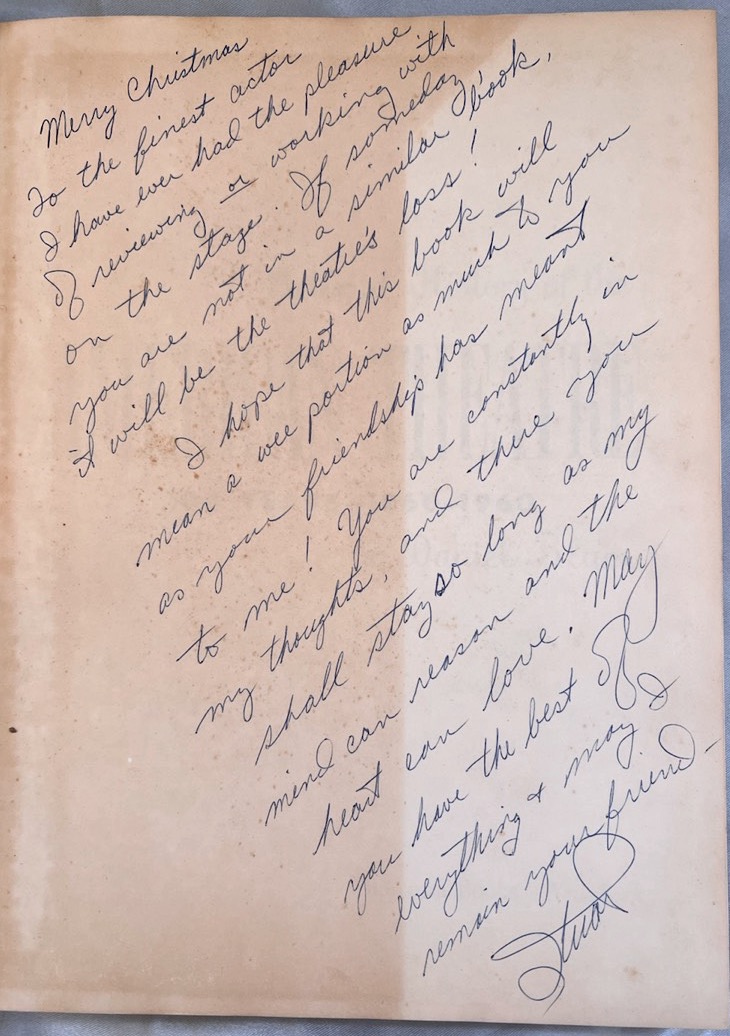 Merry Christmas
To the finest actor
I have ever had the pleasure
of reviewing or working with
on the stage. If someday
you are not in a similar book,
it will be the theatre's loss!
I hope that this book will
mean a wee portion as much to you
as your friendship has meant
to me! You are constantly in
my thoughts, and there you
shall stay so long as my
mind can reason and the
heart can love. May
you have the best of
everything & may I
remain your friend-